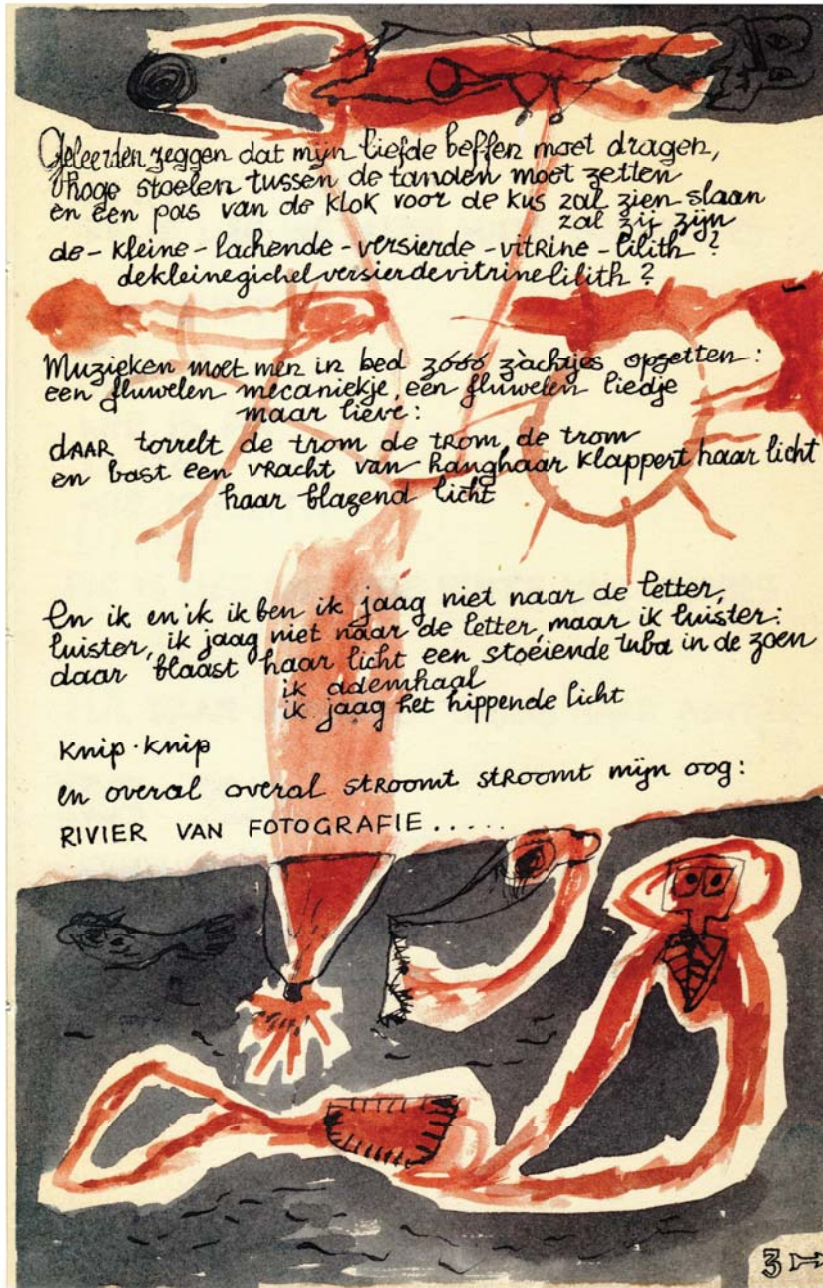 Geleerden zeggen dat mijn liefde beffen moet dragen,
thoge stoelen tussen de tanden moet zetten
en een pas van de klok voor de kus zal zien slaan
zal zij zijn
de-kleine-lachende-versierde-vitrine-lilith?
dekleinegichelversierdevitrinelilith?
Muzieken moet men in bed zóóó zàchtjes opzetten:
een fluwelen mecaniekje, een fluwelen liedje
maar lieve:
dAAR torrelt de trom de tRom de trom
en bast een vRacht van hanghaar klappert haar licht
haar blazend licht
En ik en ik ik ben ik jaag niet naar de letter,
luister, ik jaag niet naar de letter, maar ik luister:
daar blaast haar licht een stoeiende tuba in de zoen
ik ademhaal
ik jaag het hippende licht
knip-knip
en overal overal stRoomt stRoomt mijn oog:
RIVIER VAN FOTOGRAFIE.....
3